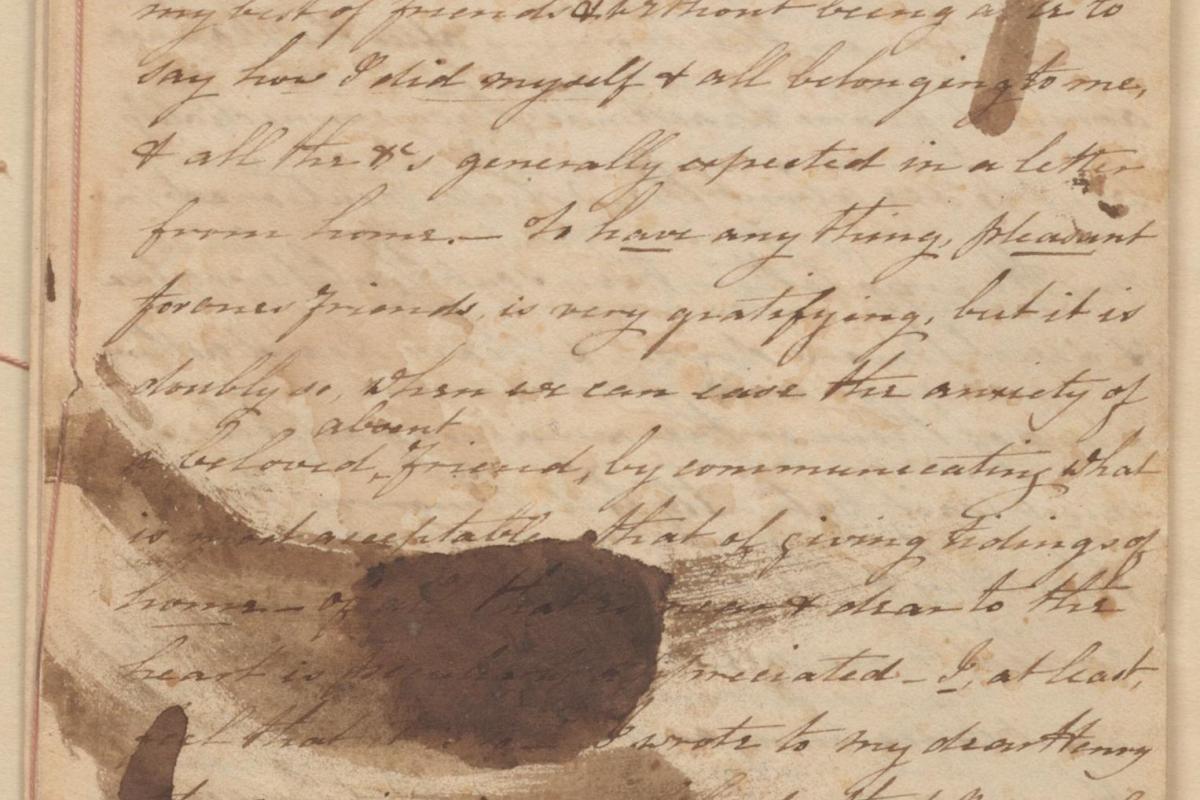 my best of friends & without being a to
say how I did myself & all belonging to me,
& all the &c,s generally expected in a letter
from home. — To have any thing, pleasant
for ones friends, is very gratifying, but it is
doubly so, when we can ease the anxiety of
absent
a beloved, friend, by communicating what
is most acceptable, that of giving tidings of
home — of all that is near & dear to the
heart is appreciated — I, at least,
feel that I wrote to my dear Henry